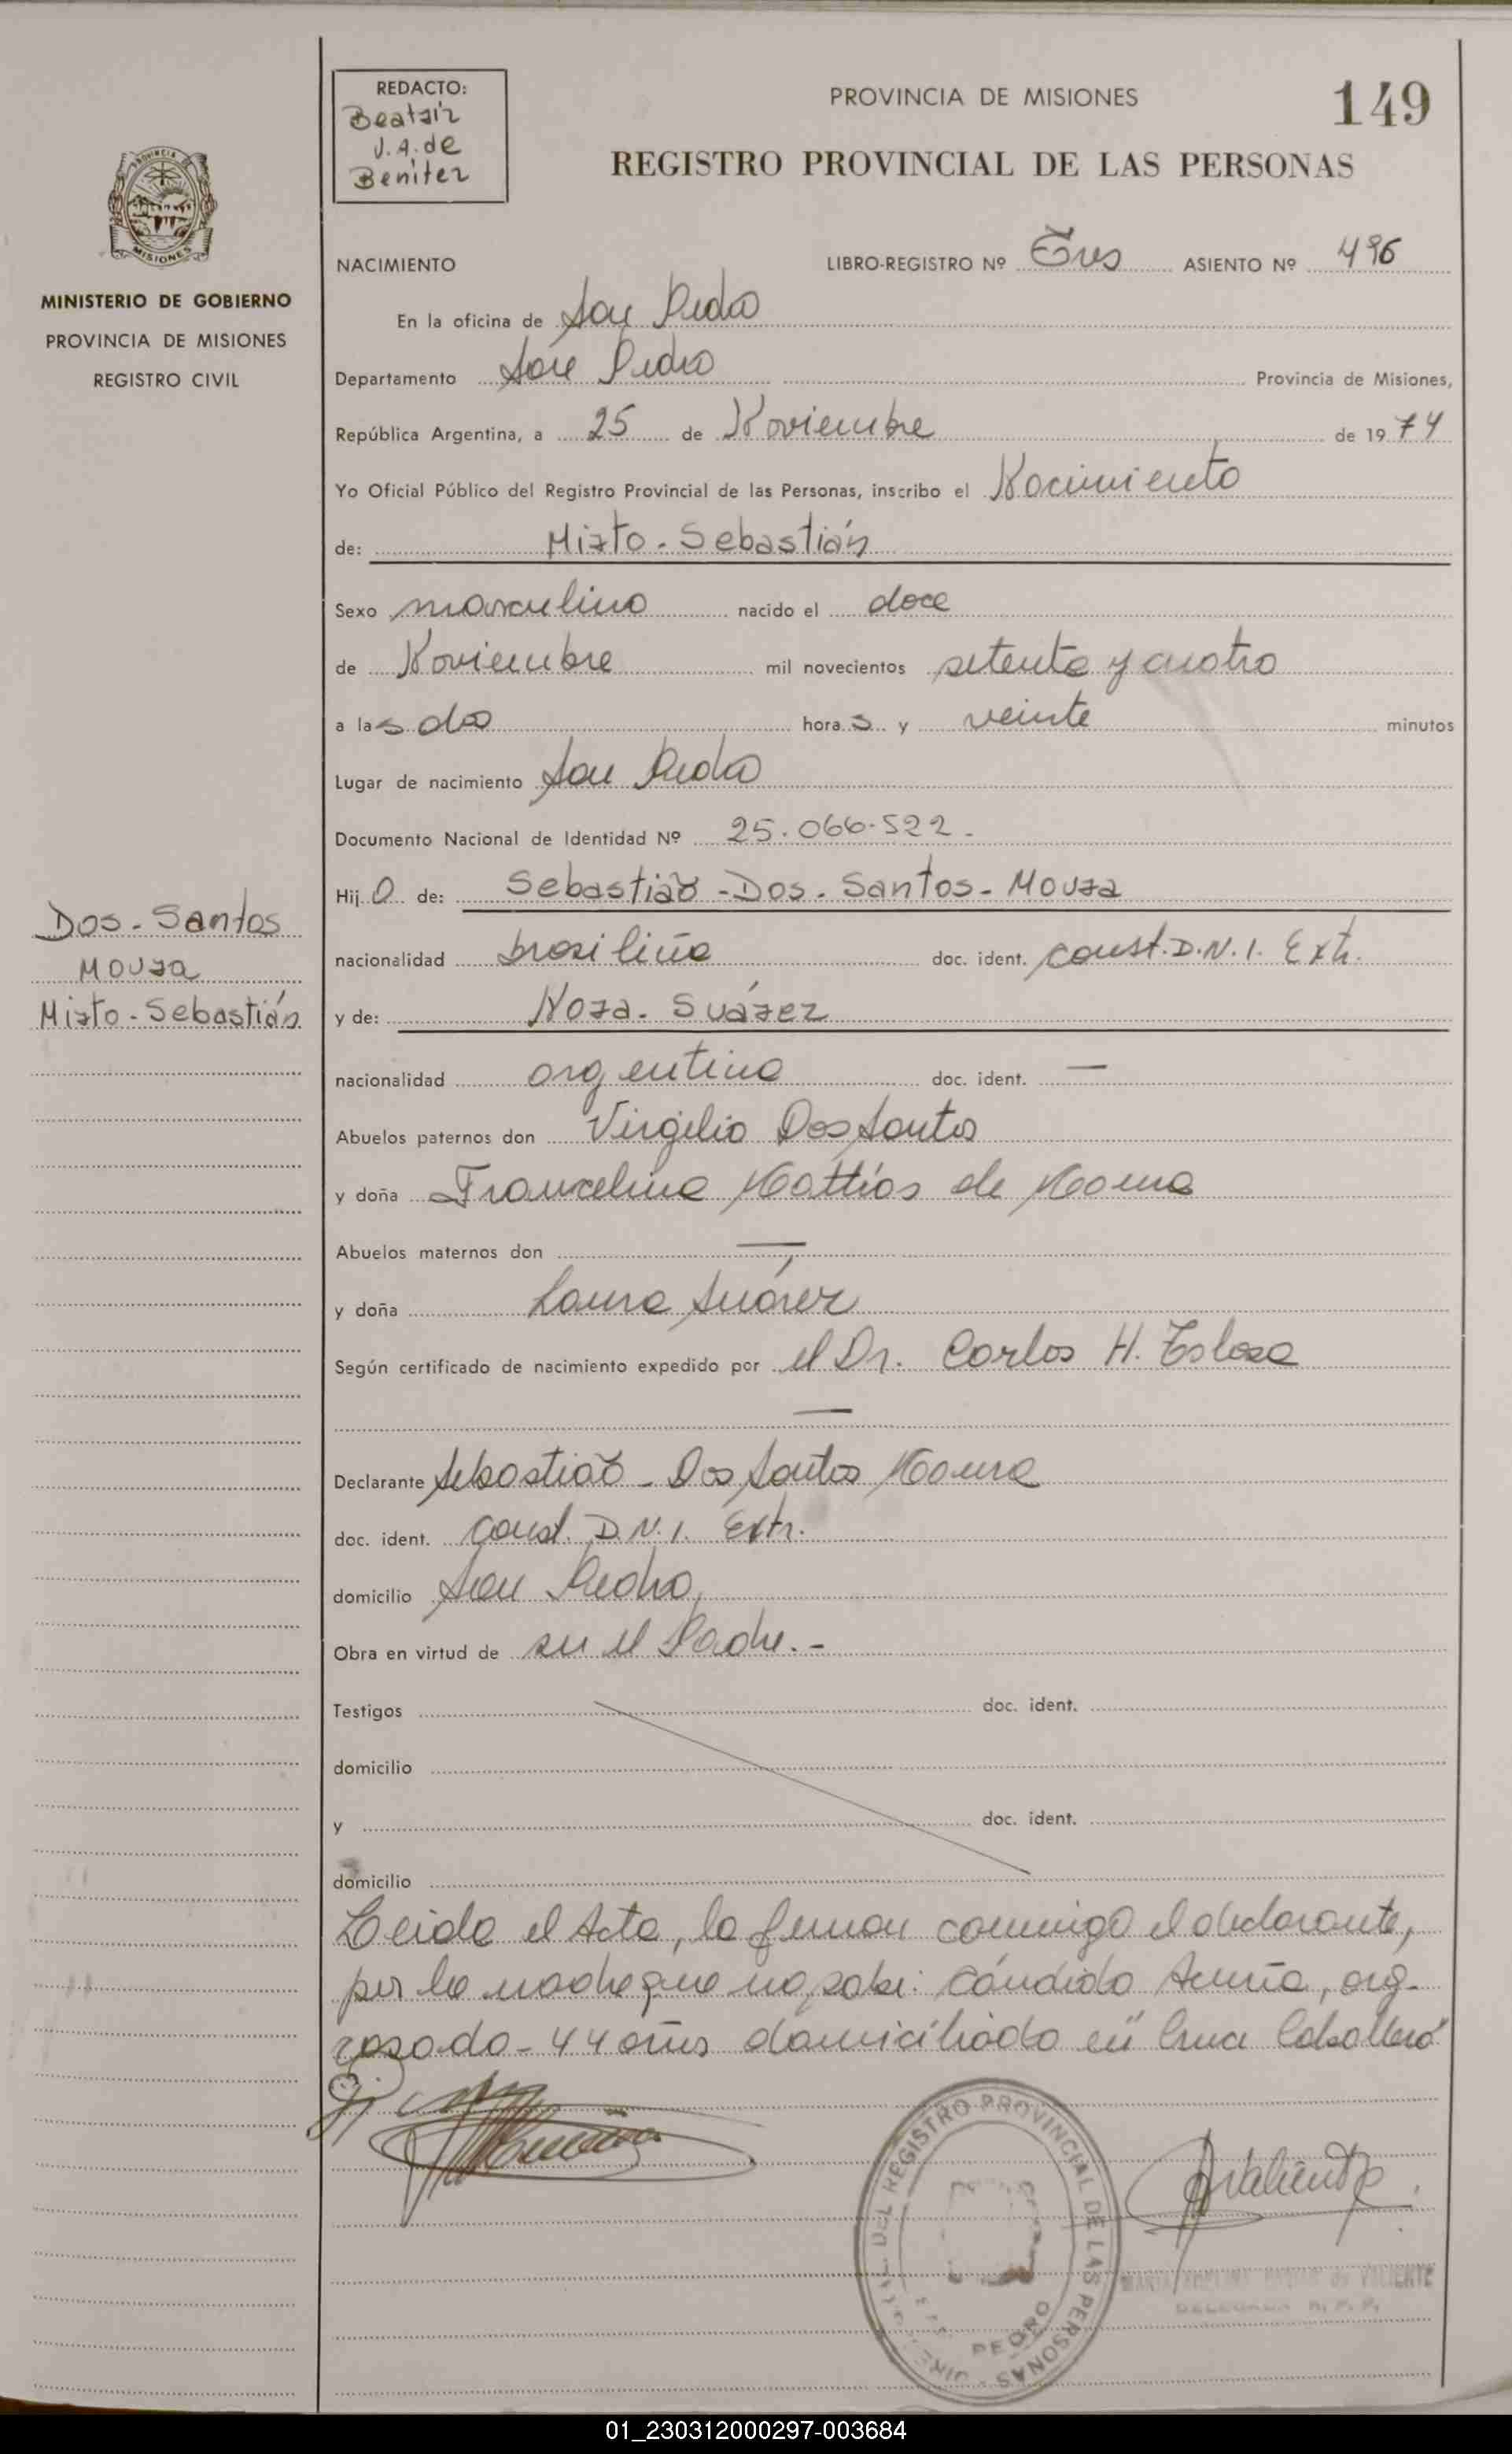 REDACTO:
Beatriz
V. A. de
Benítez
PROVINCIA DE MISIONES
149
REGISTRO PROVINCIAL DE LAS PERSONAS
MISIONES
MINISTERIO DE GOBIERNO
PROVINCIA DE MISIONES
REGISTRO CIVIL
NACIMIENTO LIBRO-REGISTRO Nº Tres ASIENTO Nº 496
En la oficina de San Pedro
Departamento San Pedro Provincia de Misiones,
República Argentina, a 25 de Noviembre de 1974
Yo Oficial Público del Registro Provincial de las Personas, inscribo el Nacimiento
de: Mirto - Sebastián
Sexo masculino nacido el doce
de Noviembre mil novecientos setenta y cuatro
a las dos horas y veinte minutos
Lugar de nacimiento San Pedro
Documento Nacional de Identidad Nº 25.066.522.-
Hijo de: Sebastiaõ - Dos - Santos - Moura
Dos - Santos
Moura
Mirto - Sebastián
nacionalidad brasileña doc. ident. const. D.N.I. Extr.
y de: Suárez
nacionalidad argentina doc. ident. —
Abuelos paternos don Virgilio Dos Santos
y doña Francelina Mattíos de Moura
Abuelos maternos don —
y doña Laura Suárez
Según certificado de nacimiento expedido por el Dr. Carlos H. Tolosa
—
Declarante Sebastiaõ - Dos Santos Moura
doc. ident. const. D.N.I. Extr.
domicilio San Pedro,
Obra en virtud de ser el Padre.-
Testigos doc. ident.
domicilio
y doc. ident.
domicilio
Leída el Acta, la firman conmigo el declarante,
por la madre que no sabe: Cándido Acuña, arg-
casado - 44 años domiciliado en "Cruce Caballero"
DEL REGISTRO PROVINCIAL DE LAS PERSONAS
PEDRO
de VALIENTE
DELEGADA R. P. P.
01_230312000297-003684